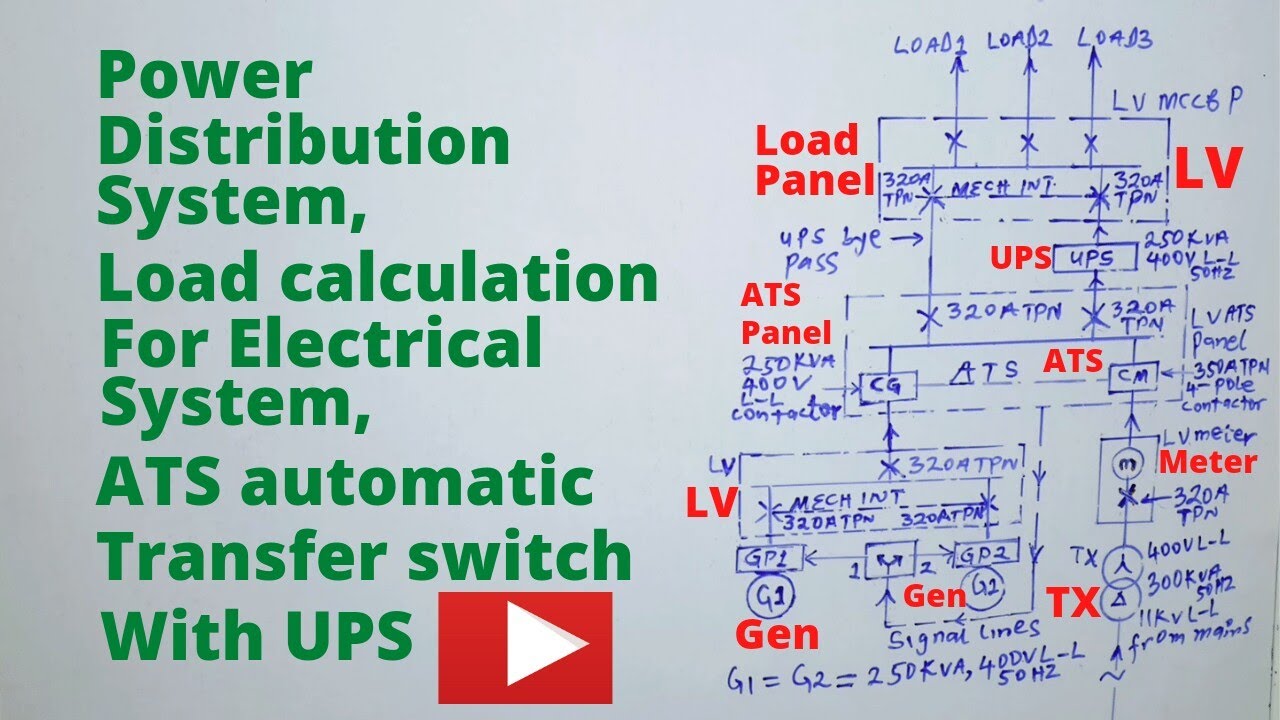 Power
Distribution
System,
Load calculation
For Electrical
System,
ATS automatic
Transfer switch
With UPS
LOAD1 LOAD2 LOAD3
LV MCCB P
Load
Panel
LV
320A
TPN
MECH INT.
320A
TPN
UPS bye
pass
UPS
UPS
250KVA
400V L-L
50HZ
ATS
Panel
320ATPN
320A
TPN
LVATS
Panel
250KVA
400V
L-L
contactor
CG
ATS
ATS
CM
350ATPN
4-pole
contactor
LV
320ATPN
LV
MECH INT
320ATPN 320ATPN
LV meter
Meter
m
320A
TPN
GP1
1
2
GP2
G1
G2
Gen
Gen
Signal lines
TX
TX
400V L-L
300KVA
50HZ
11KV L-L
from mains
G1 = G2 = 250KVA, 400V L-L
50HZ